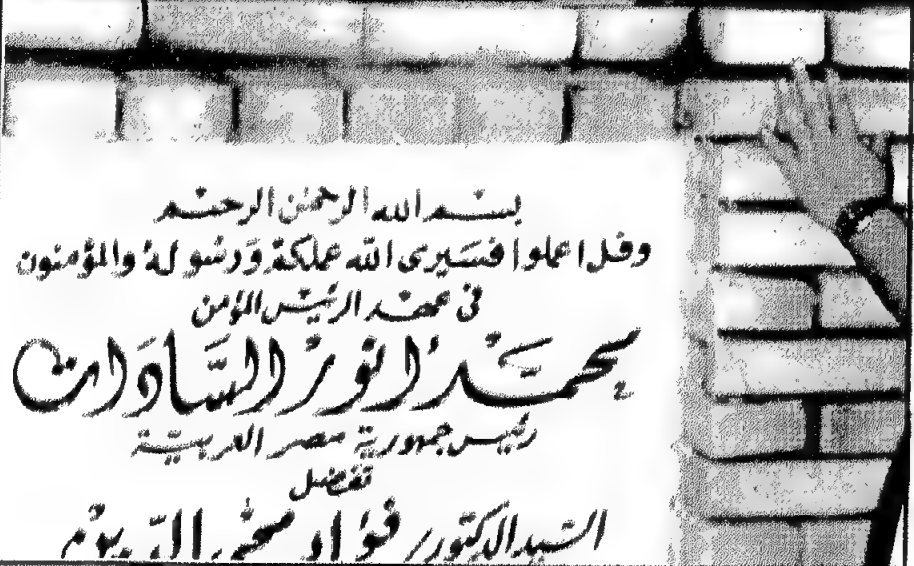 بسم الله الرحمن الرحيم
وقل اعملوا فسيرى الله عملكم ورسوله والمؤمنون
فى عهد الرئيس المؤمن
محمد انور السادات
رئيس جمهورية مصر العربية
تفضل
السيد الدكتور فؤاد محى الدين